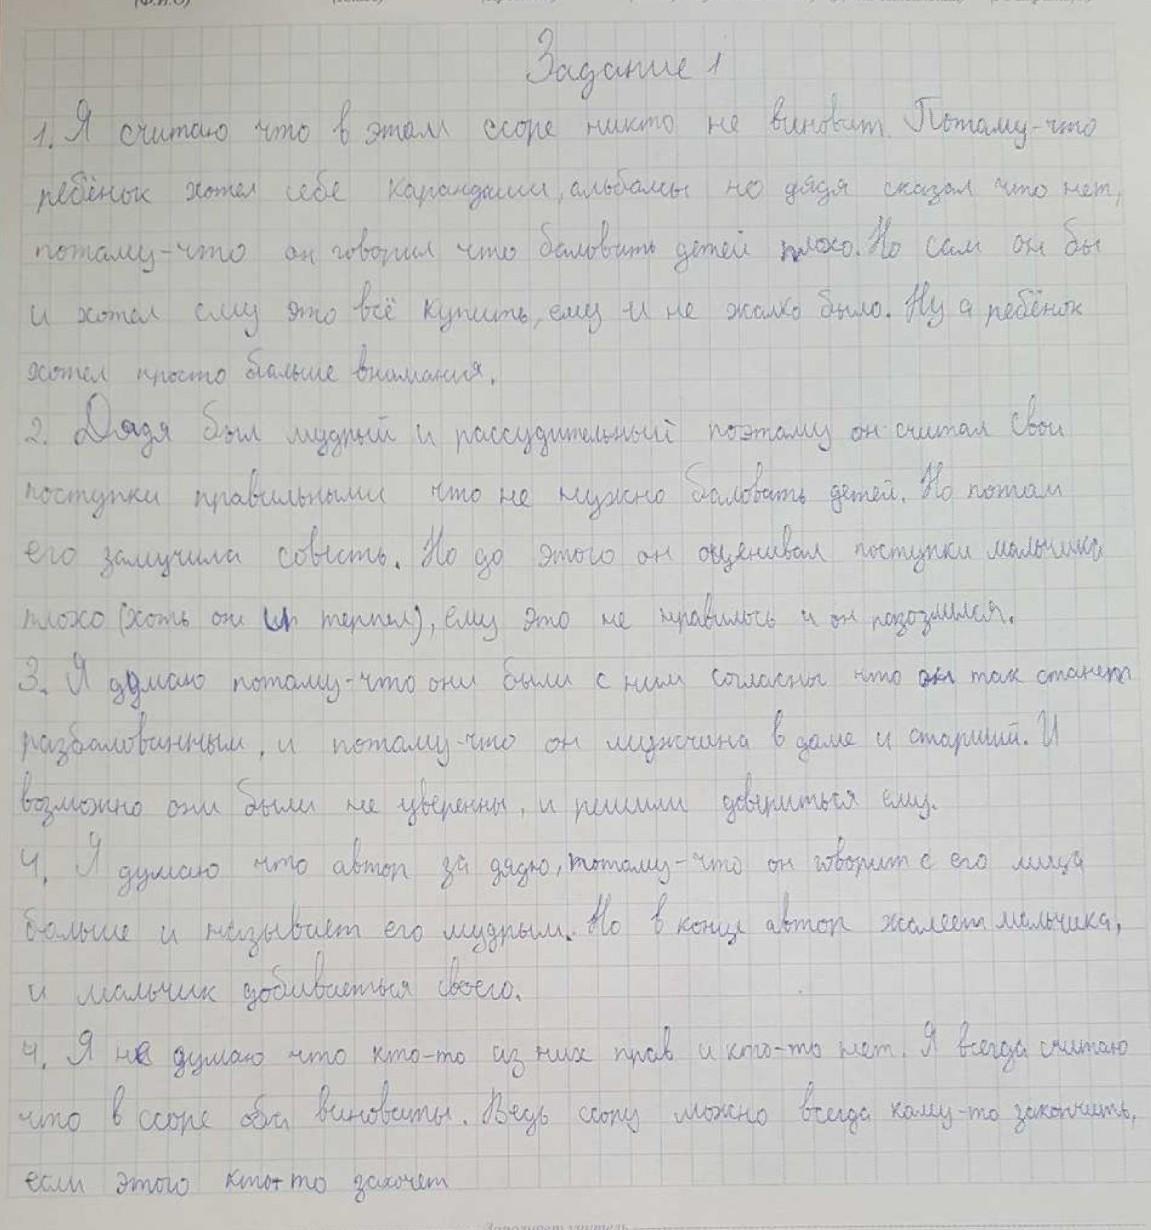 Задание 1
1. Я считаю что в этом ссоре никто не виноват. Потому-что
ребёнок хотел себе карандаши, альбомы но дядя сказал что нет,
потому-что он говорил что баловать детей плохо. Но сам он бы
и хотел ему это всё купить, ему и не жалко было. Ну а ребёнок
хотел просто больше внимания.
2. Дядя был мудрый и рассудительный поэтому он считал свои
поступки правильными что не нужно баловать детей. Но потом
его замучила совесть. Но до этого он оценивал поступки мальчика
плохо (хоть он и терпел), ему это не нравилось и он разозлился.
3. Я думаю потому-что они были с ним согласны что он так станет
разбалованным, и потому-что он мужчина в доме и старший. И
возможно они были не уверенны, и решили довериться ему.
4. Я думаю что автор за дядю, потому-что он говорит с его лица
больше и называет его мудрым. Но в конце автор жалеет мальчика,
и мальчик добиваеться своего.
4. Я не думаю что кто-то из них прав и кто-то нет. Я всегда считаю
что в ссоре оба виноваты. Ведь ссору можно всегда кому-то закончить,
если этого кто-то захочет